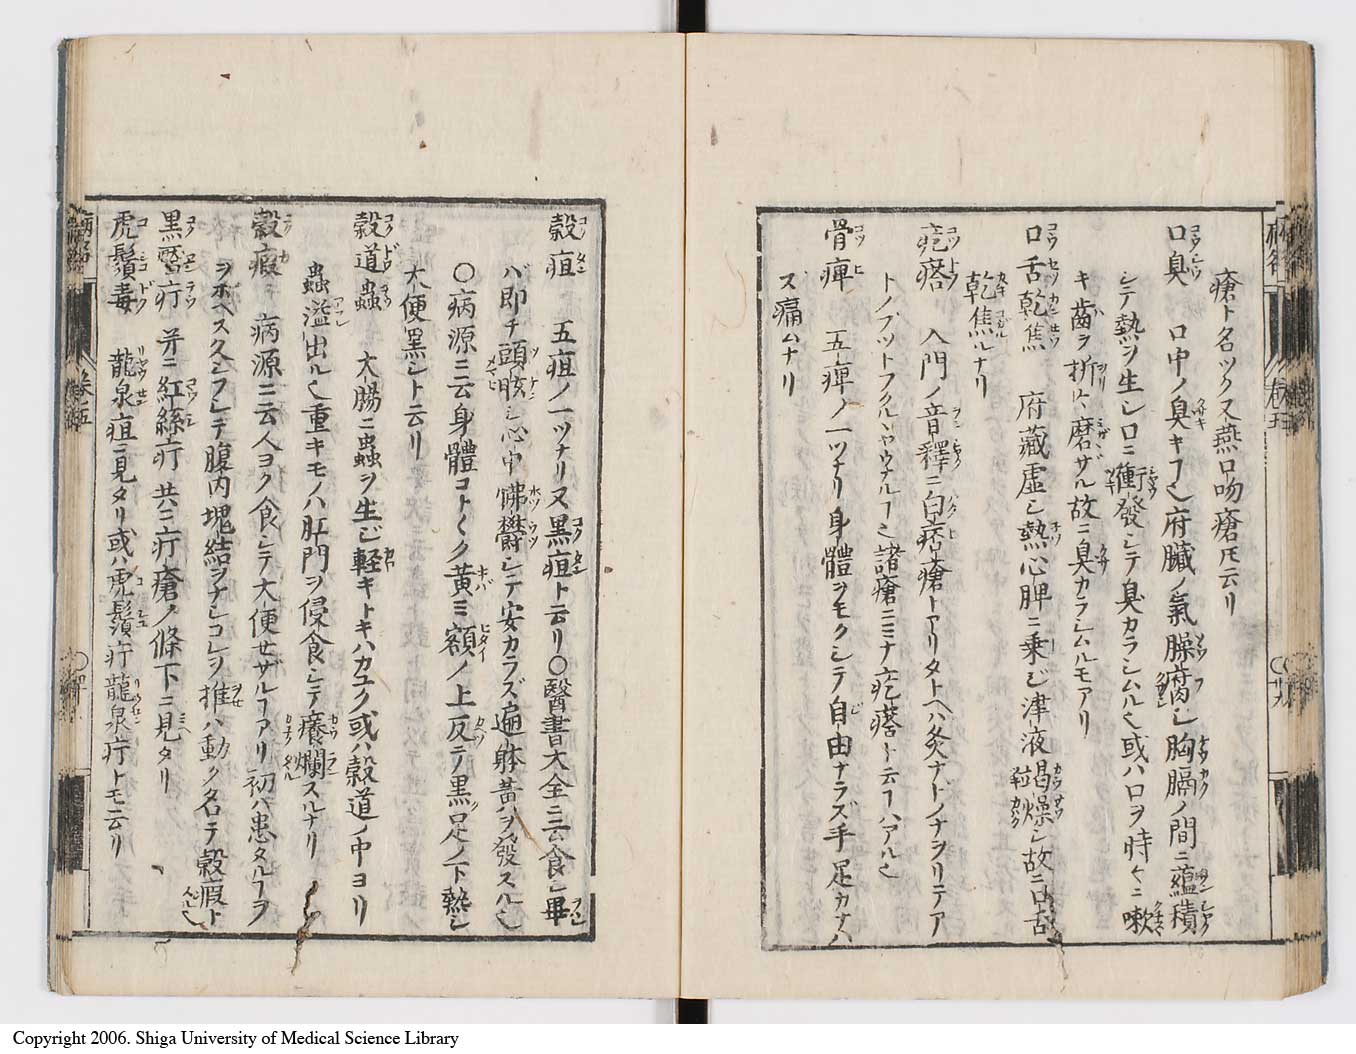 瘡ト名ツク又燕口吻瘡トモ云リ
口臭 口中ノ臭キフ也府臓ノ氣臊腐シ胸膈ノ間ニ蘊積
シテ熱ヲ生シ口ニ衝發シテ臭カラシムル也或ハ口ヲ時々ニ嗽
キ齒ヲ折ト磨ザル故ニ臭カラシムルモアリ
口舌乾焦 府藏虚シ熱心脾ニ乗ジ津液竭燥シ故ニ口舌
乾焦ルナリ
疙瘩 入門ノ音釋ニ白痞瘡トアリタトヘハ灸ナトノナヲリテア
トノプツトフクルヽヤウナルフ也諸瘡ニミナ疙瘩ト云フハアル也
骨痺 五痺ノ一ツナリ身體ヲモクシテ自由ナラズ手足カナハ
ズ痛ムナリ
穀疸 五疸ノ一ツナリ又黒疸ト云リ〇醫書大全ニ云食シ畢
バ即チ頭眩シ心中怫欝シテ安カラズ遍躰黄ヲ發スル也
〇病源ニ云身體コトヽク黄ミ額ノ上反テ黒足ノ下熱シ
大便黒シト云リ
穀道蟲 大腸ニ蟲ヲ生ジ軽キトキハカユク或ハ穀道ノ中ヨリ
蟲溢出ル也重キモノハ肛門ヲ侵食シテ癢爛スルナリ
穀瘕 病源ニ云人ヨク食シテ大便セザルフアリ初ハ患タルフヲ
ヲボヘス久シフシテ腹内塊結ヲナシコレヲ推ハ動ク名テ穀瘕ト
黒靨疔 并ニ紅絲疔共ニ疔瘡ノ條下ニ見タリ
虎鬚毒 龍泉疽ニ見タリ或ハ虎鬚疔龍泉疔トモ云リ
病名
巻五
Copyright 2006. Shiga University of Medical Science Library